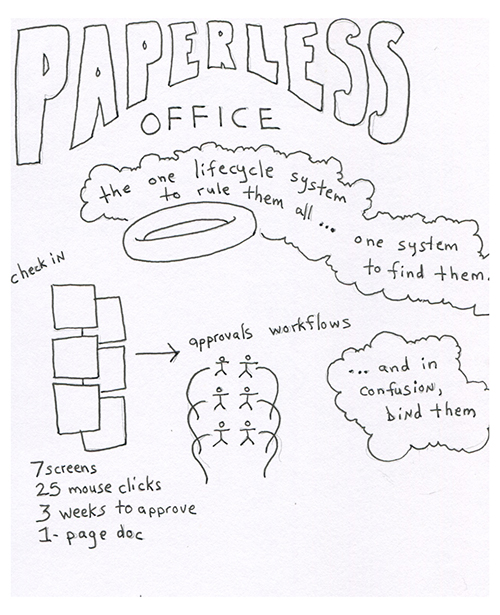 PAPERLESS
OFFICE
the one lifecycle system
to rule them all ...
one system
to find them.
check in
approvals workflows
... and in
confusion,
bind them
7 screens
25 mouse clicks
3 weeks to approve
1-page doc